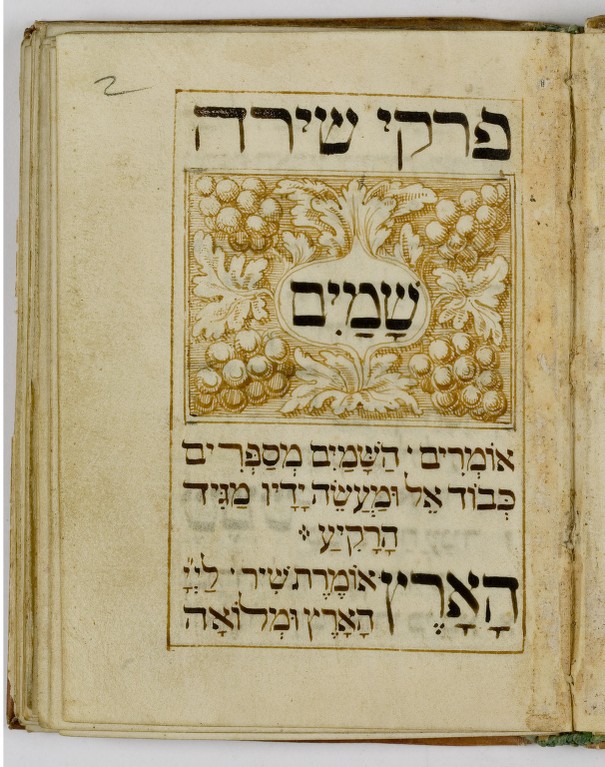 2
פרקי שירה
שָׁמַיִם
אוֹמְרִים· הַשָּׁמַיִם מְסַפְּרִים
כְּבוֹד אֵל וּמַעֲשֵׂה יָדָיו מַגִּיד
הָרָקִיעַ
הָאָרֶץ אוֹמֶרֶת שִׁיר· לַיְיָ
הָאָרֶץ וּמְלוֹאָהּ